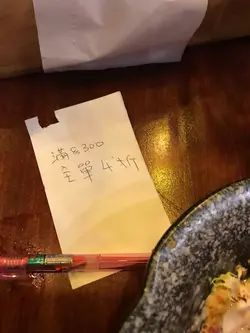 滿額300
全單 4折